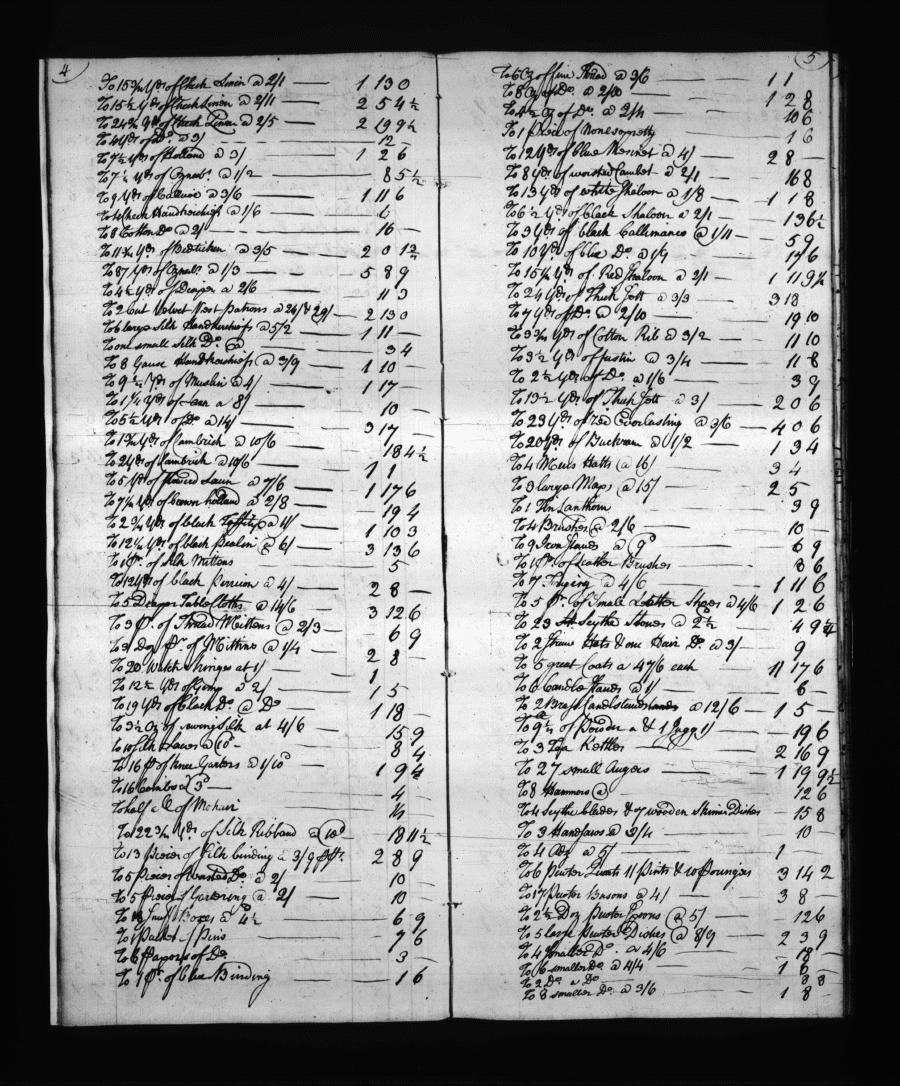 4
To 15¾ Yds of Check Linen @ 2/1 — 1 13 0
To 15½ Yds of Check Linen @ 2/11 — 2 5 4½
To 24¾ Yds of Check Linen @ 2/5 — 2 19 9½
To 4 Yds of Do. @ 3/ — 12 —
To 7½ Yds of Holland @ 3/ — 1 2 6
To 7¼ Yds of Oznabs. @ 1/2 — 8 5½
To 9 Yds of Callico @ 3/6 — 1 11 6
To 4 Check Handkerchiefs @ 1/6 — 6 —
To 8 Cotton Do. @ 2/ — 16 —
To 11¾ Yds of Bedticken @ 3/5 — 2 0 1½
To 87 Yds of Oznabs @ 1/3 — 5 8 9
To 4½ Yds of Deaper @ 2/6 — 11 3
To 2 Cut Velvet Vest Patrons @ 24/ & 29/ — 2 13 0
To 6 large Silk Handkerchiefs @ 5/2 — 1 11 —
To one small Silk Do. @ — 3 4
To 8 Gause Handkerchiefs @ 3/9 — 1 10 —
To 9¼ Yds of Muslin @ 4/ — 1 17 —
To 1¼ Yds of @ 8/ — 10 —
To 5½ Yds of Do @ 14/ — 3 17 —
To 1¾ Yds of Cambrick @ 10/6 — 18 4½
To 2 Yds of Cambrick @ 10/6 — 1 1
To 5 Yds of flowerd Lawn @ 7/6 — 1 17 6
To 7¼ Yds of brown holland @ 2/8 — 19 4
To 2¾ Yds of black Taffity @ 11/ — 1 10 3
To 12¼ Yds of black Pealin @ 6/ — 3 13 6
To 1 Pr. of Silk Mittens — 5
To 12 Yds of black @ 4/ — 2 8 —
To 5 Deaper Table Cloths @ 14/6 — 3 12 6
To 3 Pr. of Thread Mittens @ 2/3 — 6 9
To 3 Doz Pr. of Mittins @ 1/4 — 2 8
To 20 Watch Strings at 1/ — 1
To 12½ Yds of Gimp @ 2/ — 1 5 —
To 19 Yds of black Do @ Do — 1 18 —
To 3½ Oz of sewing Silk at 4/6 — 15 9
To 10 Silk Laces @ 10d — 8 4
To 16 Pr of knee Garters @ 1/10d — 1 9 4
To 16 Combs @ 3d — 4 —
To half a lb of Mohair — 14 —
To 22¾ Yds. of Silk Ribband @ 10d — 18 11½
To 13 Pieces of Silk binding @ 3/9 Ps. — 2 8 9
To 5 Pieces of worsted Do. @ 2/ — 10 —
To 5 Pieces of Gartering @ 2/ — 10 —
To 18 Snuff Boxes @ 4½ — 6 9
To 1 Packet of Pins — 7 6
To 6 Papers of Do — 3 —
To 1 Ps. of blue Binding — 1 6
5
To 6 Oz of fine Thread @ 3/6 — 1 1
To 8 Oz of Do. @ 2/10 — 1 2 8
To 4½ Oz of Do. @ 2/4 — 10 6
To 1 Piece of Nonesopretty — 1 6
To 12 Yds of blue Mersnet @ 4/ — 2 8 —
To 8 Yds of worsted Camblet @ 2/1 — 16 8
To 13 Yds of white Shaloon @ 1/8 — 1 1 8
To 6½ Yds of black Shaloon @ 2/1 — 13 6½
To 3 Yds of black Callimanco @ 1/11 — 5 9
To 10 Yds of blue Do. @ 1/9 — 17 6
To 15¼ Yds of Red Shaloon @ 2/1 — 1 11 9¼
To 24 Yds of Thick Sett @ 3/3 — 3 18
To 7 Yds of Do @ 2/10 — 19 10
To 3¾ Yds of Cotton Rib @ 3/2 — 11 10
To 3½ Yds of fustin @ 3/4 — 11 8
To 2½ Yds of Do. @ 1/6 — 3 9
To 13½ Yds. of Thick Sett @ 3/ — 2 0 6
To 23 Yds of red Everlasting @ 3/6 — 4 0 6
To 20 Yds. of Buckram @ 1/2 — 1 3 4
To 4 Mens Hatts @ 16/ — 3 4
To 3 large Maps @ 15/ — 2 5
To 1 Tin Lanthorn — 3 9
To 4 Brushes @ 2/6 — 10 —
To 9 Iron Stands @ 9d — 6 9
To 1 Pr. of scatter Brushes — 8 6
To 7 @ 4/6 — 1 11 6
To 5 Pr. of Small Leather Shoes @ 4/6 — 1 2 6
To 23 Scythe Stones @ 2½ — 4 9½
To 2 Straw Hats & one Hair Do. @ 3/ — 9
To 5 great Coats @ 47/6 each — 11 17 6
To 6 Candle Stands @ 1/ — 6 —
To 2 Brass Candlesticks @ 12/6 — 1 5 —
To 9½ lb of Powder & 1 Jugg 1/ — 19 6
To 3 Tea Kettles — 2 16 9
To 27 small Augers — 1 19 9½
To 8 Hammers @ — 12 6
To 4 Scythe blades & 7 wooden Skimer Dishes — 15 8
To 3 Handsaws @ 3/4 — 10
To 4 Adz @ 5/ — 1 —
To 6 Pewter Quarts 11 Pints & 10 Poringers — 3 14 2
To 17 Pewter Basons @ 4/ — 3 8
To 2½ Doz Pewter Spoons @ 5/ — 12 6
To 5 large Pewter Dishes @ 8/9 — 2 3 9
To 4 smaller Do. @ 4/6 — 18 —
To 6 smaller Do. @ 4/4 — 1 6 —
To 2 Do. @ Do — 8 8
To 8 smaller Do. @ 3/6 — 1 8 —